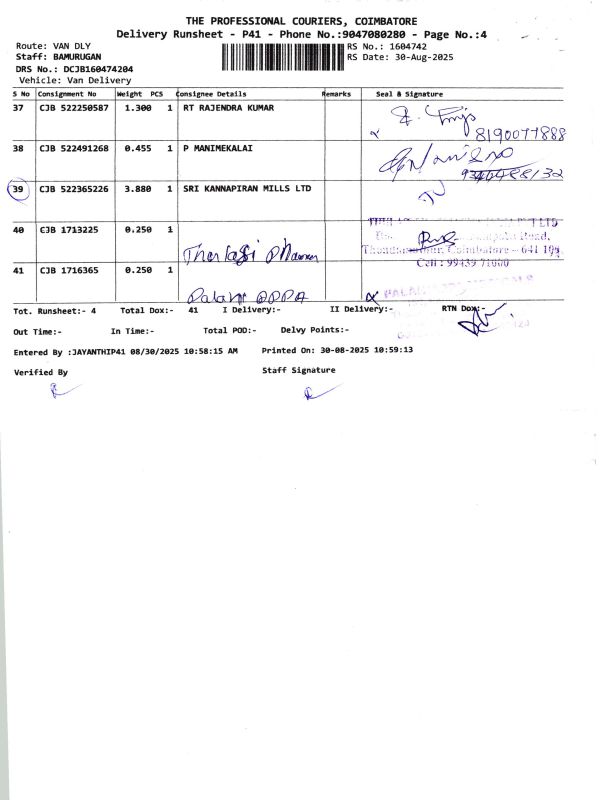 THE PROFESSIONAL COURIERS, COIMBATORE
Delivery Runsheet - P41 - Phone No.:9047080280 - Page No.:4
Route: VAN DLY RS No.: 1604742
Staff: BAMURUGAN RS Date: 30-Aug-2025
DRS No.: DCJB160474204
Vehicle: Van Delivery
S No Consignment No Weight PCS Consignee Details Remarks Seal & Signature
37 CJB 522250587 1.300 1 RT RAJENDRA KUMAR
8190077888
38 CJB 522491268 0.455 1 P MANIMEKALAI
39 CJB 522365226 3.880 1 SRI KANNAPIRAN MILLS LTD
40 CJB 1713225 0.250 1
Coimbatore - 641 109
Cell : 99439 71000
41 CJB 1716365 0.250 1
Tot. Runsheet:- 4 Total Dox:- 41 I Delivery:- II Delivery:- RTN Dox:-
Out Time:- In Time:- Total POD:- Delvy Points:-
Entered By :JAYANTHIP41 08/30/2025 10:58:15 AM Printed On: 30-08-2025 10:59:13
Verified By Staff Signature